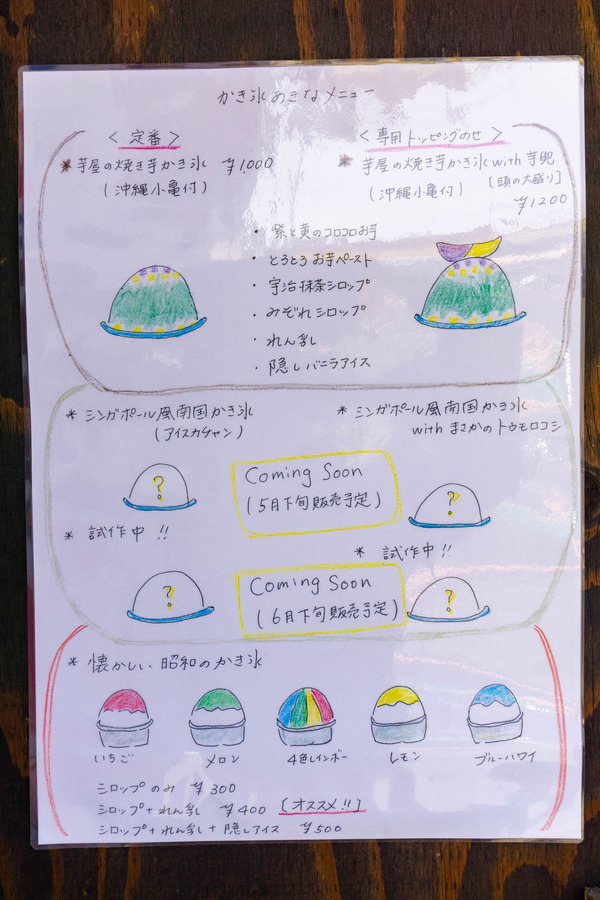 かき氷あきなメニュー
<定番>
<専用トッピングのせ>
* 芋屋の焼き芋かき氷 ¥1,000
(沖縄小亀付)
* 芋屋の焼き芋かき氷with芋兜
(沖縄小亀付) [頭の大盛り]
¥1200
・紫と黄のコロコロお芋
・とろとろお芋ペースト
・宇治抹茶シロップ
・みぞれシロップ
・れん乳
・隠しバニラアイス
* シンガポール風南国かき氷
(アイスカチャン)
* シンガポール風南国かき氷
with まさかのトウモロコシ
?
Coming Soon
(5月下旬販売予定)
?
* 試作中!!
* 試作中!!
?
Coming Soon
(6月下旬販売予定)
?
* 懐かしい昭和のかき氷
いちご
メロン
4色レインボー
レモン
ブルーハワイ
シロップのみ ¥300
シロップ+れん乳 ¥400 [オススメ!!]
シロップ+れん乳+隠しアイス ¥500